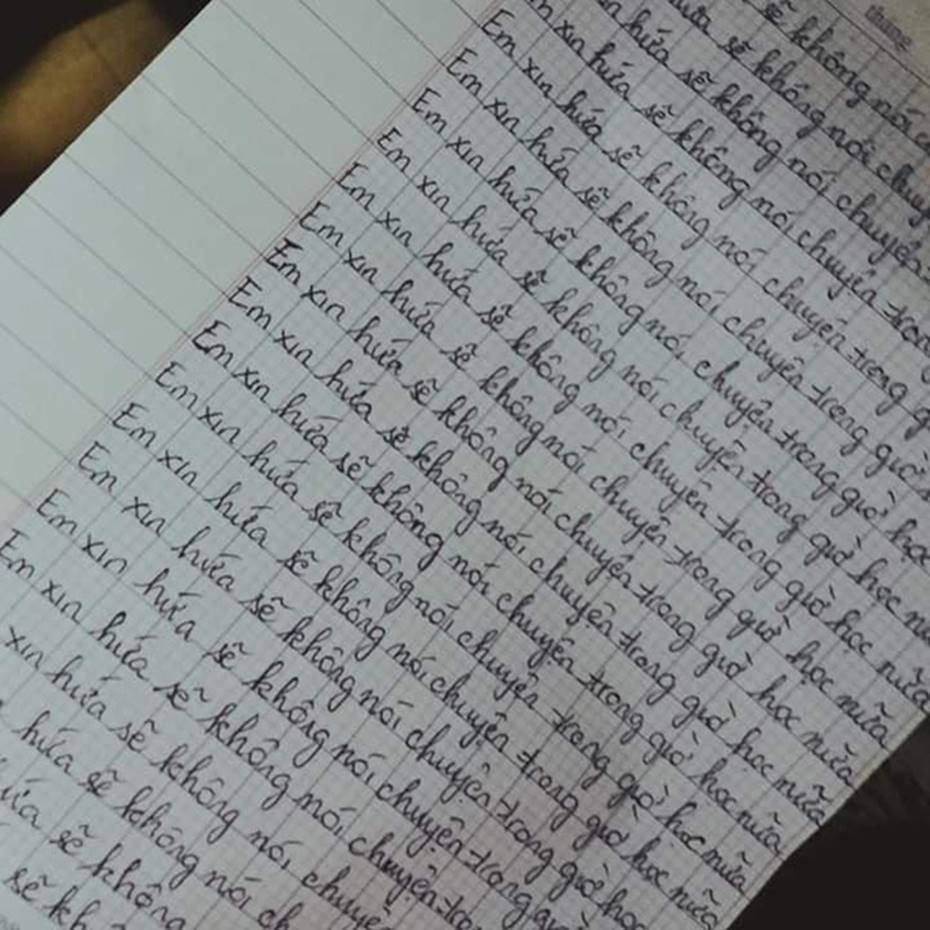 tháng
sẽ không nói
hứa sẽ không nói
hứa sẽ không nói chuyện
xin hứa sẽ không nói chuyện
Em xin hứa sẽ không nói chuyện trong
Em xin hứa sẽ không nói chuyện trong giờ
Em xin hứa sẽ không nói chuyện trong giờ học
Em xin hứa sẽ không nói chuyện trong giờ học
Em xin hứa sẽ không nói chuyện trong giờ học nữa
Em xin hứa sẽ không nói chuyện trong giờ học nữa
Em xin hứa sẽ không nói chuyện trong giờ học nữa
Em xin hứa sẽ không nói chuyện trong giờ học nữa
Em xin hứa sẽ không nói chuyện trong giờ học nữa
Em xin hứa sẽ không nói chuyện trong giờ học nữa
Em xin hứa sẽ không nói chuyện trong giờ học nữa
Em xin hứa sẽ không nói chuyện trong giờ học
Em xin hứa sẽ không nói chuyện trong giờ
Em xin hứa sẽ không nói chuyện
xin hứa sẽ không nói chuyện
hứa sẽ không nói
sẽ không
sẽ